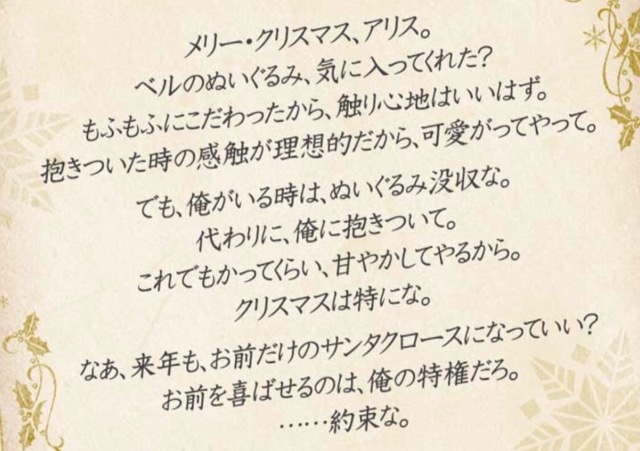 メリー・クリスマス、アリス。
ベルのぬいぐるみ、気に入ってくれた?
もふもふにこだわったから、触り心地はいいはず。
抱きついた時の感触が理想的だから、可愛がってやって。
でも、俺がいる時は、ぬいぐるみ没収な。
代わりに、俺に抱きついて。
これでもかってくらい、甘やかしてやるから。
クリスマスは特にな。
なあ、来年も、お前だけのサンタクロースになっていい?
お前を喜ばせるのは、俺の特権だろ。
……約束な。